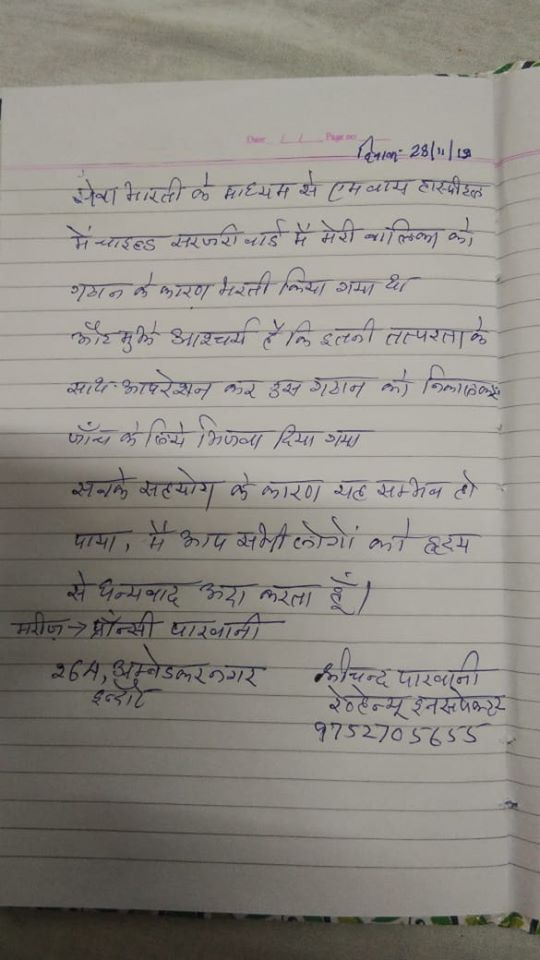 Date / / Page no
दिनांक- 28/11/19
सेवा भारती के माध्यम से एमवाय हास्पीटल
में चाइल्ड सरजरी वार्ड में मेरी बालिका को
गठान के कारण भरती किया गया था
और मुझे आश्चर्य है कि इतनी तत्परता के
साथ आपरेशन कर इस गठान को निकालकर
जाँच के लिये भिजवा दिया गया
सबके सहयोग के कारण यह सम्भव हो
पाया, मैं आप सभी लोगों को हृदय
से धन्यवाद अदा करता हूँ।
मरीज़ → प्रॉन्सी पारवानी
26A, अम्बेडकर नगर
इन्दौर
श्रीचन्द पारवानी
रेवेन्यू इनसपेक्टर
9752705655